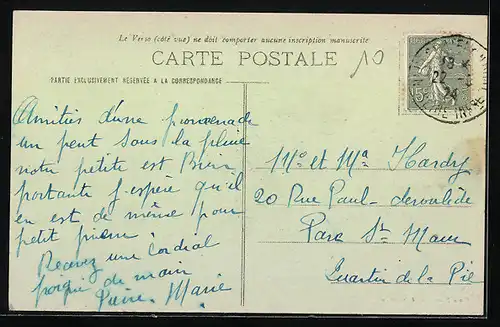 Le Verso (côté vue) ne doit comporter aucune inscription manuscrite
CARTE POSTALE
10
PARTIE EXCLUSIVEMENT RÉSERVÉE A LA CORRESPONDANCE
Amitiés d'une promenade
un peut sous la pluie
notre petite est Bien
portante j'espère qu'il
en est de même pour
petit pierre
Recevez une cordial
poigné de main
Marie
Mr et Ma Hardy
20 Rue Paul-deroulède
Parc St Maur
Quartier de la Pie
15c
24